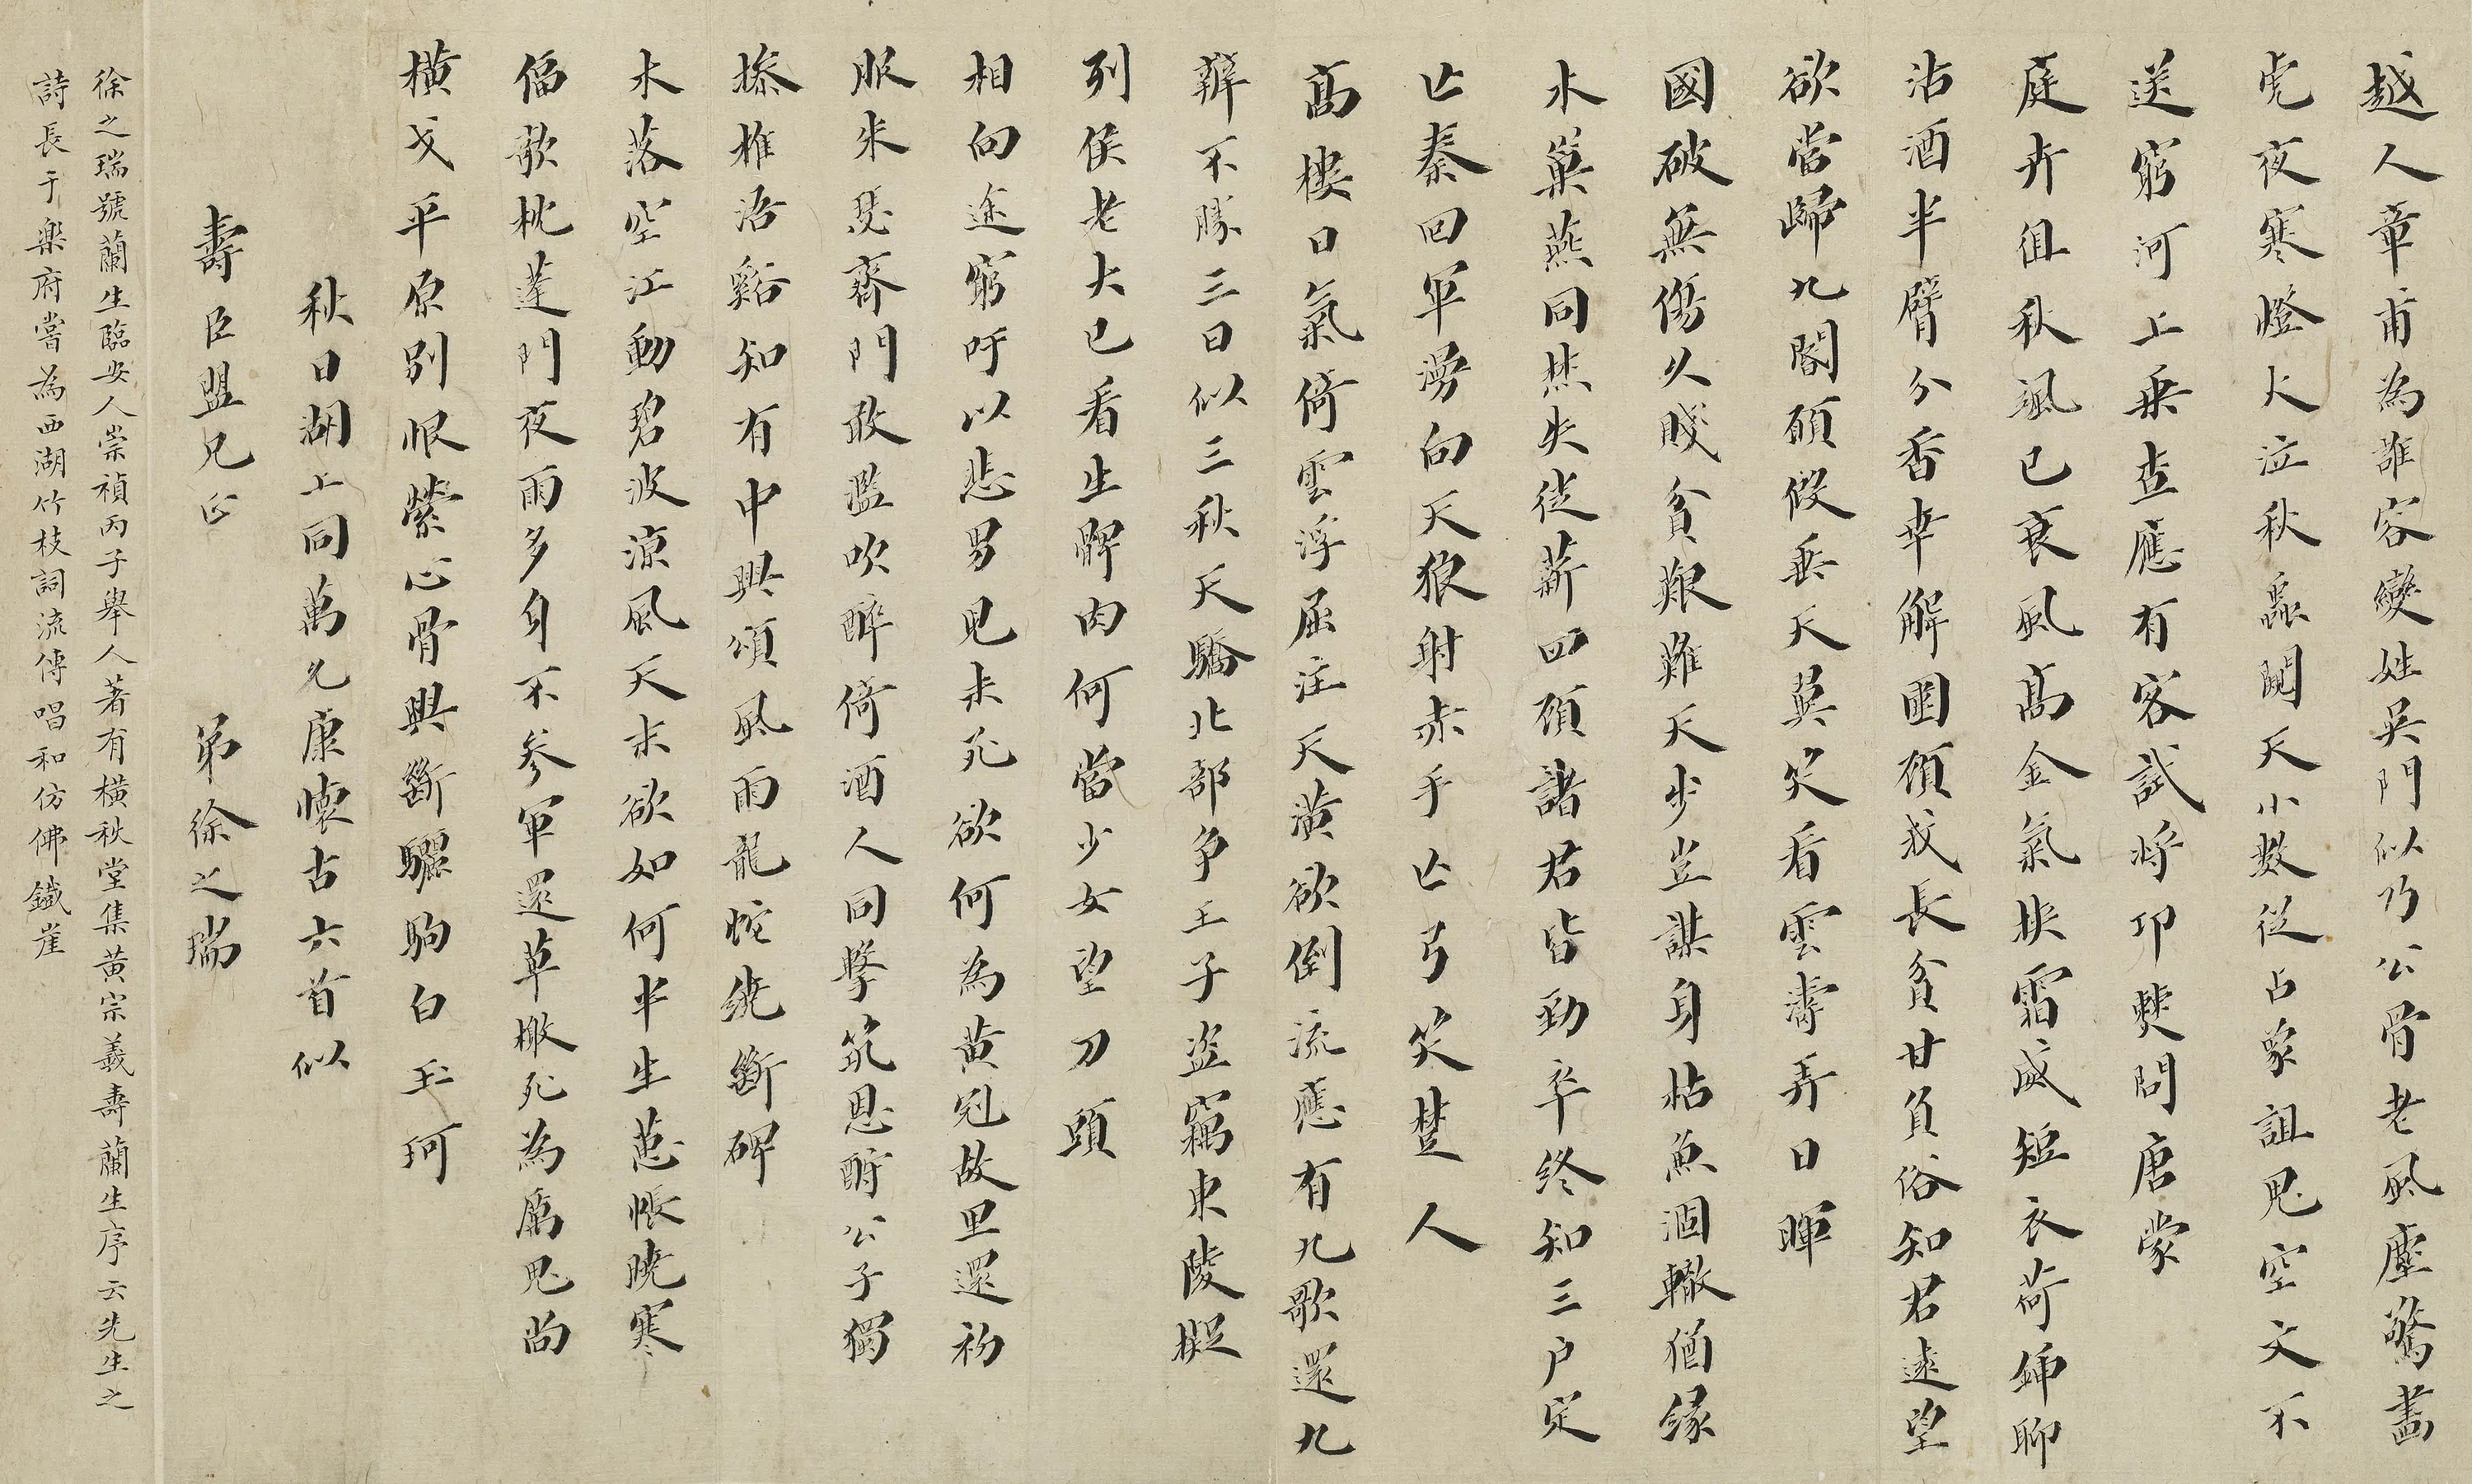 越人章甫為誰容變姓吳門似乃公骨老風塵驚畫
虎夜寒燈火泣秋蟲閒天小數從占象詛鬼空文不
送窮河上乘查應有客試將邛僰問唐蒙
庭卉徂秋颯已衰風高金氣挾霜威短衣荷鍤聊
沽酒半臂分香幸解圍頎我長貧甘負俗知君遠望
欲當歸九閽頎假垂天翼笑看雲濤弄日暉
國破無傷久賤貧艱難天步豈謀身枯魚涸轍猶緣
木巢燕同焚失徙薪四顧諸君皆勁卒終知三戶定
亡秦回軍湧向天狼射赤手亡弓笑楚人
高樓日氣倚雲浮屈注天潢欲倒流應有九歌還九
辯不勝三日似三秋天驕北部爭王子盜竊東陵擬
列侯老大已看生髀肉何當少女望刀頭
相向途窮吁以悲男兒未死欲何為黃冠故里還初
服朱瑟齊門敢濫吹醉倚酒人同擊筑恩酬公子獨
搽椎浯谿知有中興頌風雨龍蛇繞斷碑
木落空江動碧波涼風天末欲如何半生蕙帳曉寒
偪欹枕蓬門夜雨多身不參軍還草檄死為厲鬼尚
橫戈平原別恨縈心骨興斷驪駒白玉珂
秋日湖上同萬允康懷古六首似
壽臣盟兄正 弟徐之瑞
徐之瑞號蘭生臨安人崇禎丙子舉人著有橫秋堂集黃宗羲壽蘭生序云先生之
詩長于樂府嘗為西湖竹枝詞流傳唱和仿佛鐵崖